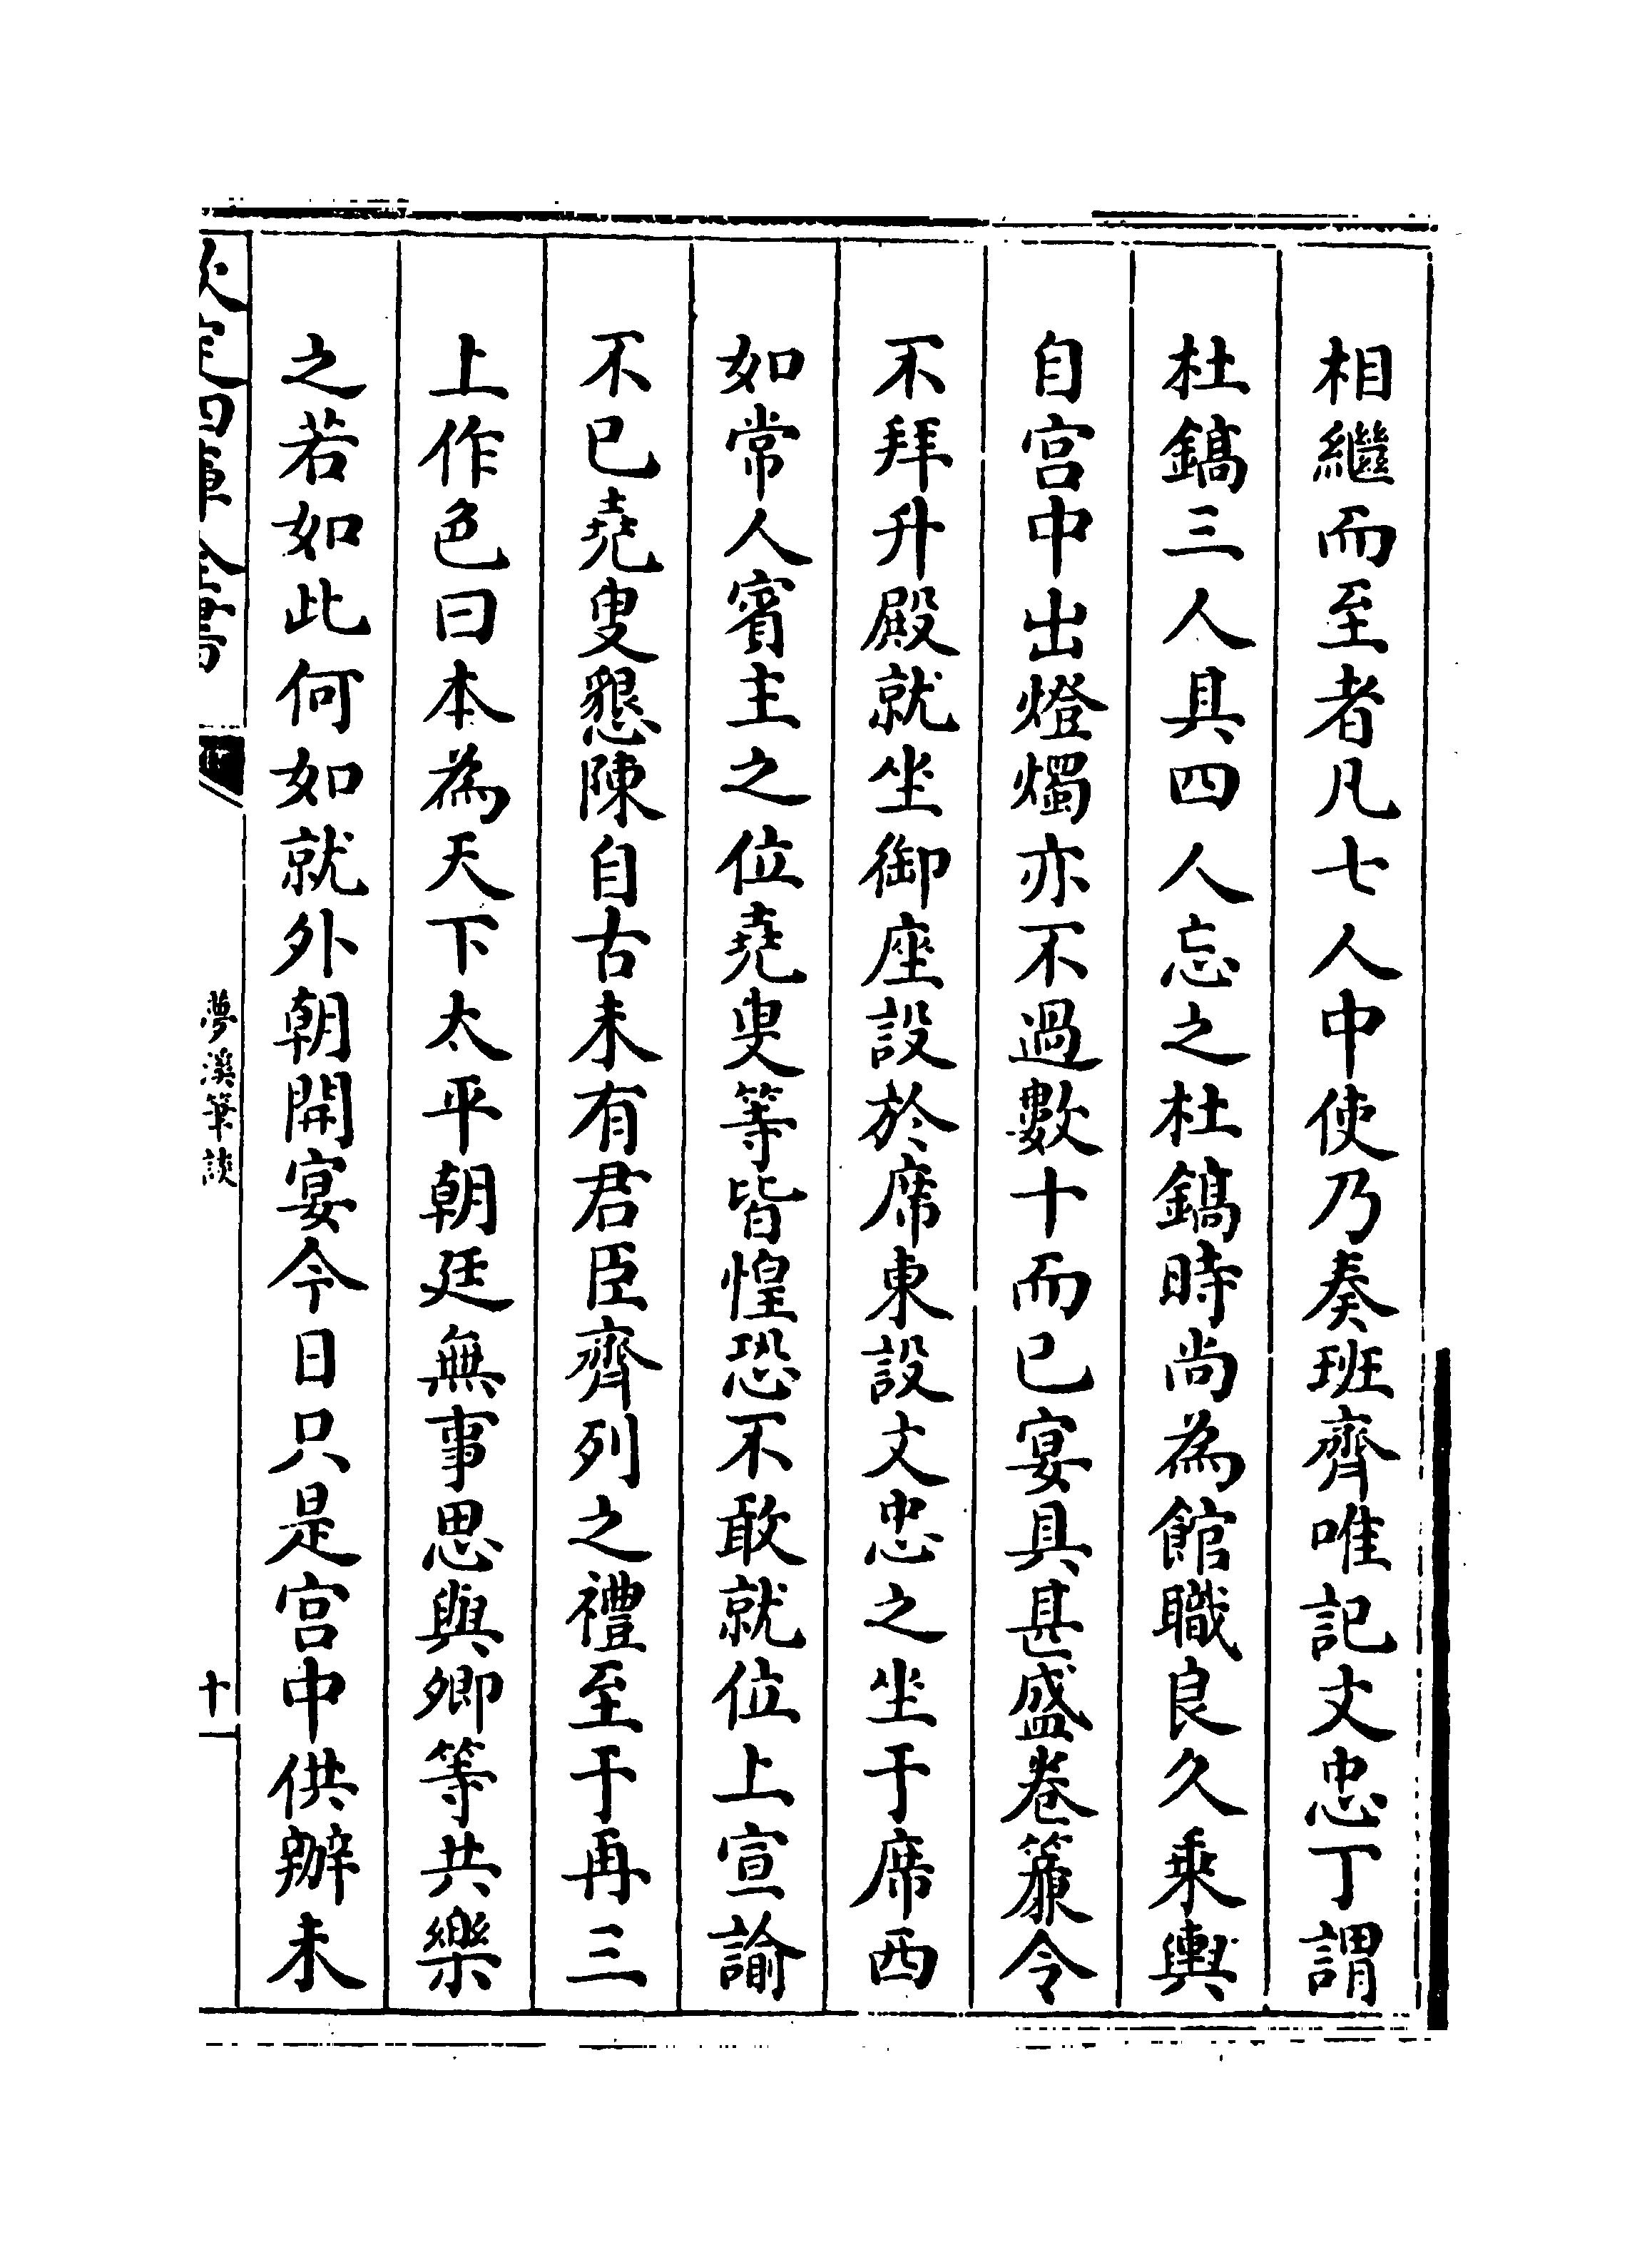 相繼而至者凡七人中使乃奏班齊唯記文忠丁謂
杜鎬三人具四人忘之杜鎬時尚為館職良久乘輿
自宫中出燈燭亦不過數十而已宴具甚盛卷簾令
不拜升殿就坐御座設於席東設文忠之坐于席西
如常人賓主之位堯叟等皆惶恐不敢就位上宣諭
不已堯叟懇陳自古未有君臣齊列之禮至于再三
上作色曰本為天下太平朝廷無事思與卿等共樂
之若如此何如就外朝開宴今日只是宫中供辦未
欽定四庫全書
夢溪筆談
十一